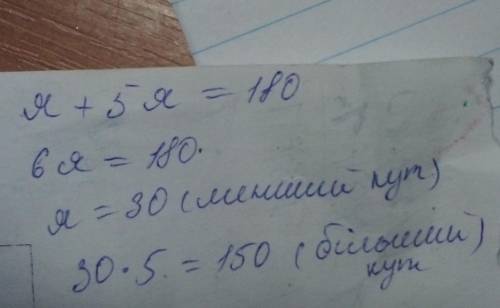 я + 5я = 180
6я = 180.
я = 30 (менший кут)
30 · 5 = 150 (більший кут)